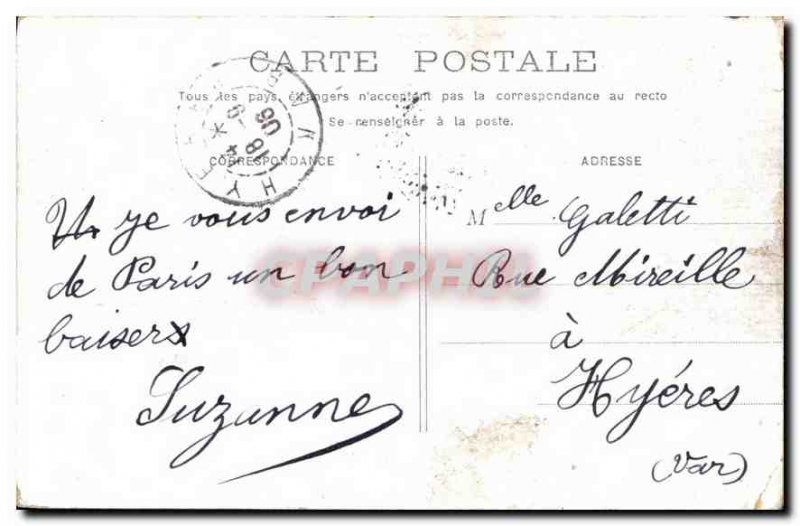 CARTE POSTALE
Tous les pays étrangers n'acceptent pas la correspondance au recto
Se renseigner à la poste.
CORRESPONDANCE
je vous envoi
de Paris un bon
baiser
Suzanne
ADRESSE
Melle Galetti
Rue Mireille
à
Hyéres
(Var)
HYE
18 -4
06
CPAPHIL